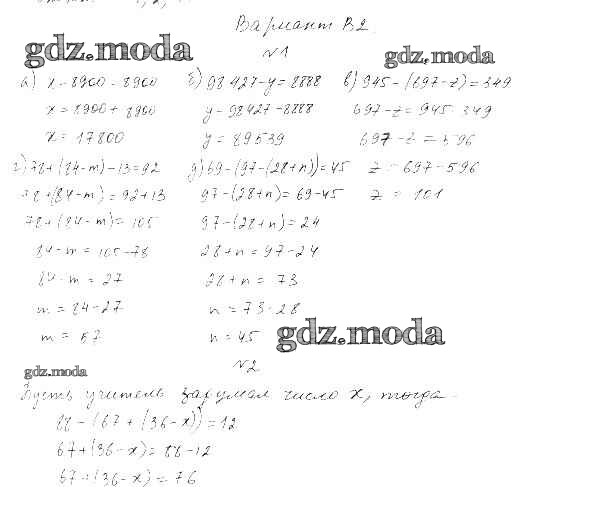 Вариант В2
gdz.moda
№1
gdz.moda
а) x - 8900 = 8900
x = 8900 + 8900
x = 17800
б) 98 427 - y = 8888
y = 98427 - 8888
y = 89539
в) 945 - (697 - z) = 349
697 - z = 945 - 349
697 - z = 596
z = 697 - 596
z = 101
г) 78 + (84 - m) - 13 = 92
78 + (84 - m) = 92 + 13
78 + (84 - m) = 105
84 - m = 105 - 78
84 - m = 27
m = 84 - 27
m = 57
д) 69 - (97 - (28 + n)) = 45
97 - (28 + n) = 69 - 45
97 - (28 + n) = 24
28 + n = 97 - 24
28 + n = 73
n = 73 - 28
n = 45
gdz.moda
№2
gdz.moda
Пусть учитель задумал число x, тогда
88 - (67 + (36 - x)) = 12
67 + (36 - x) = 88 - 12
67 + (36 - x) = 76